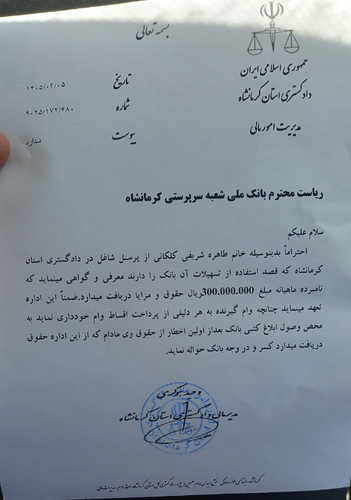 بسمه تعالی
جمهوری اسلامی ایران
دادگستری استان کرمانشاه
مدیریت امور مالی
تاریخ ۱۴۰۵/۰۳/۰۵
شماره ۹۰۲۵/۱۷۲/۴۸۰
پیوست ندارد
ریاست محترم بانک ملی شعبه سرپرستی کرمانشاه
سلام علیکم
احتراماً بدینوسیله خانم طاهره شریفی گلکانی از پرسنل شاغل در دادگستری استان
کرمانشاه که قصد استفاده از تسهیلات آن بانک را دارند معرفی و گواهی مینماید که
نامبرده ماهیانه مبلغ 300.000.000ریال حقوق و مزایا دریافت میدارد.ضمناً این اداره
تعهد مینماید چنانچه وام گیرنده به هر دلیلی از پرداخت اقساط وام خودداری نماید به
محض وصول ابلاغ کتبی بانک بعداز اولین اخطار از حقوق وی مادام که از این اداره حقوق
دریافت میدارد کسر و در وجه بانک حواله نماید.
مدیر مالی دادگستری استان کرمانشاه